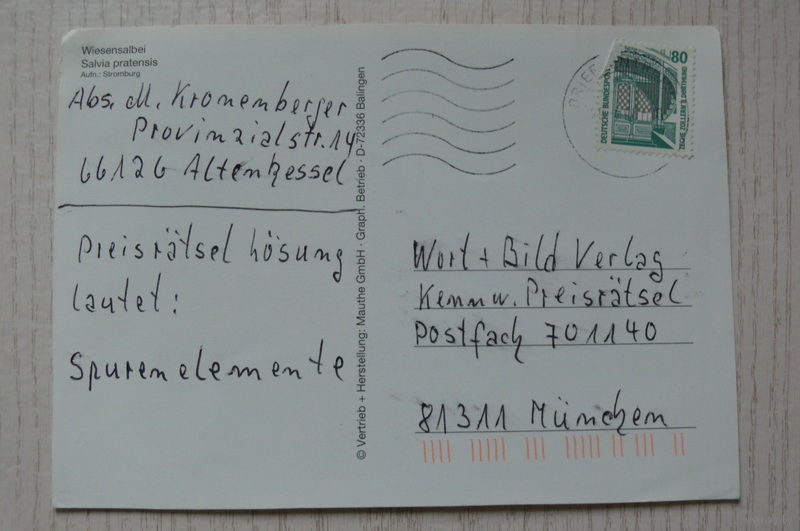 Wiesensalbei
Salvia pratensis
Aufn.: Stromburg
Abs. M. Kronenberger
Provinzialstr. 14
66126 Altenkessel
Preisrätsel Lösung
lautet:
Spurenelemente
© Vertrieb + Herstellung: Mauthe GmbH · Graph. Betrieb · D-72336 Balingen
BRIEF
80
DEUTSCHE BUNDESPOST
ZECHE ZOLLERN II, DORTMUND
Wort + Bild Verlag
Kennw. Preisrätsel
Postfach 701140
81311 München